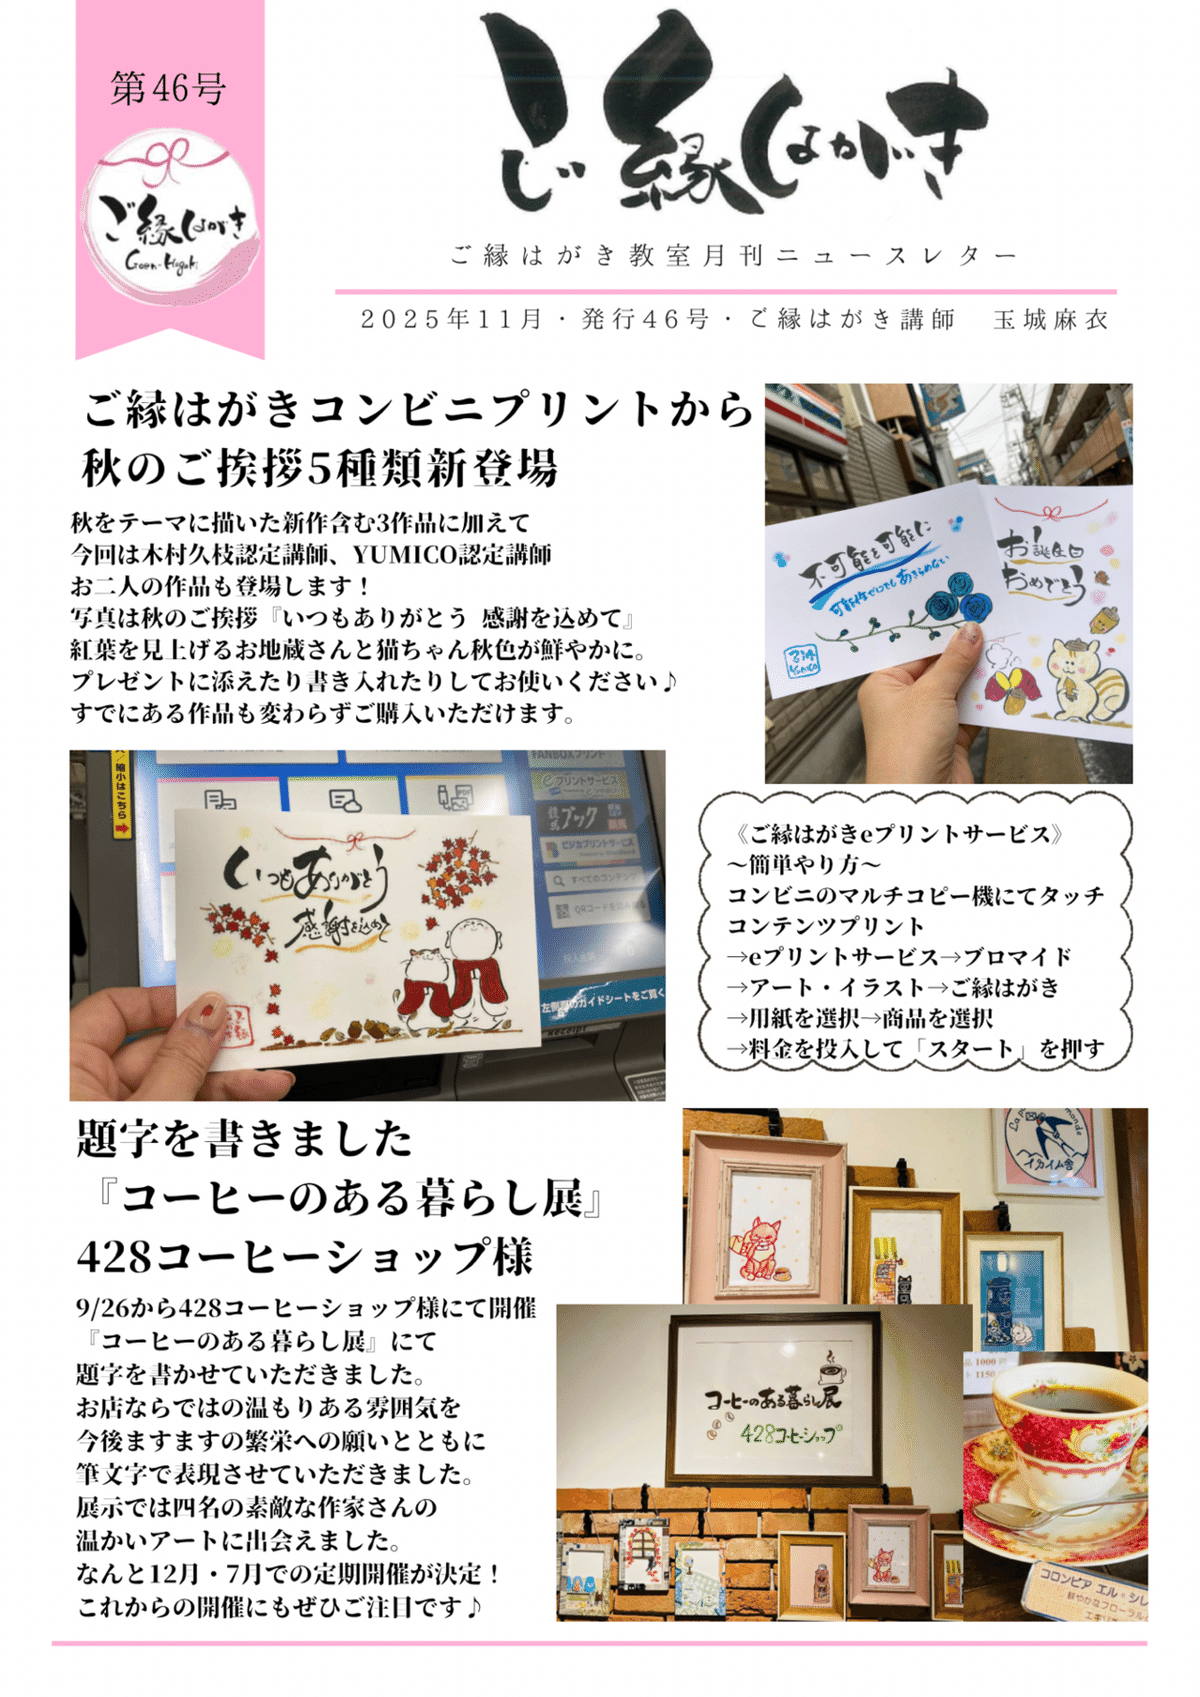 第46号
ご縁はがき
Goen-Hagaki
ご縁はがき
ご縁はがき教室月刊ニュースレター
2025年11月・発行46号・ご縁はがき講師　玉城麻衣
ご縁はがきコンビニプリントから
秋のご挨拶5種類新登場
秋をテーマに描いた新作含む3作品に加えて
今回は木村久枝認定講師、YUMICO認定講師
お二人の作品も登場します！
写真は秋のご挨拶『いつもありがとう 感謝を込めて』
紅葉を見上げるお地蔵さんと猫ちゃん秋色が鮮やかに。
プレゼントに添えたり書き入れたりしてお使いください♪
すでにある作品も変わらずご購入いただけます。
不可能を可能に
可能性ゼロでもあきらめない
お誕生日
おめでとう
縮小はこちら
FANBOXプリント
eプリントサービス
競馬ブック
ビジカプリントサービス
すべてのコンテンツ
QRコードを読み
PDF
いつもありがとう
感謝を込めて
左側面のガイドシートをご覧く
Receipt
《ご縁はがきeプリントサービス》
～簡単やり方～
コンビニのマルチコピー機にてタッチ
コンテンツプリント
→eプリントサービス→ブロマイド
→アート・イラスト→ご縁はがき
→用紙を選択→商品を選択
→料金を投入して「スタート」を押す
題字を書きました
『コーヒーのある暮らし展』
428コーヒーショップ様
9/26から428コーヒーショップ様にて開催
『コーヒーのある暮らし展』にて
題字を書かせていただきました。
お店ならではの温もりある雰囲気を
今後ますますの繁栄への願いとともに
筆文字で表現させていただきました。
展示では四名の素敵な作家さんの
温かいアートに出会えました。
なんと12月・7月での定期開催が決定！
これからの開催にもぜひご注目です♪
monde
イカイム舎
コーヒーのある暮らし展
428コーヒーショップ
1000
1150
コロンビア エル・シレ
鮮やかなフローラル